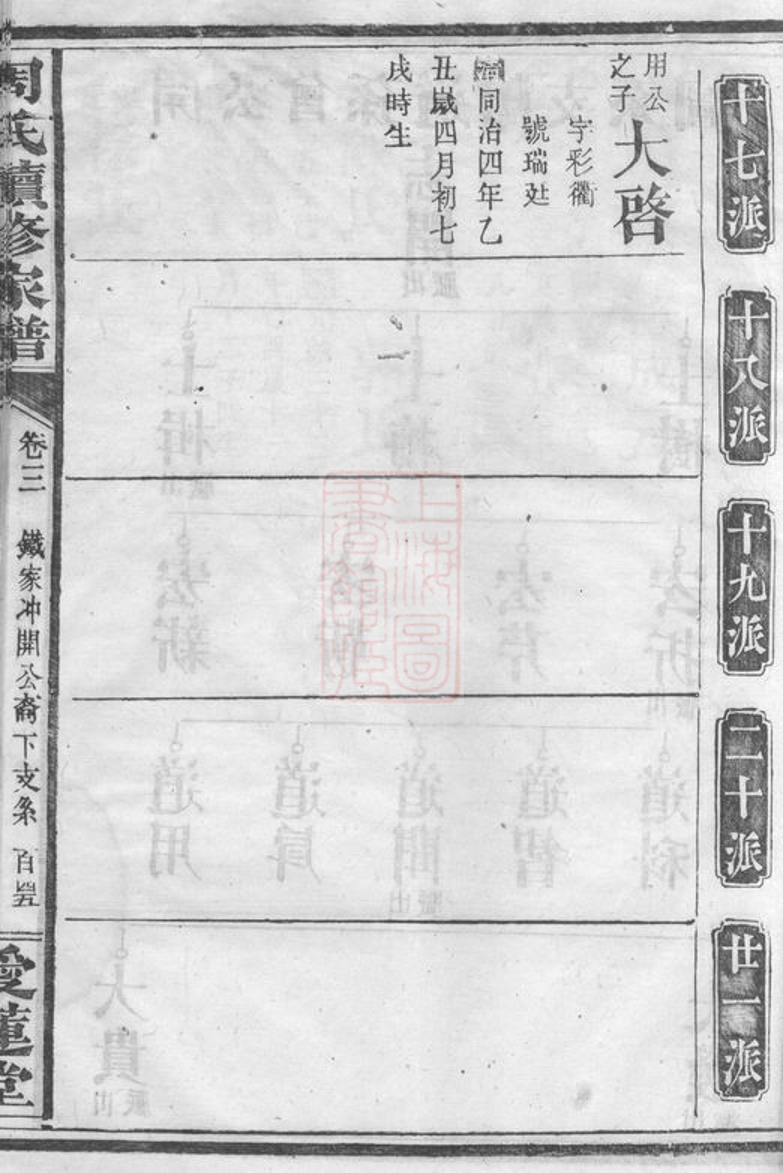 十七派
用公
之子
大啓
字彩衢
號瑞廷
清同治四年乙
丑歲四月初七
戌時生
十八派
十九派
二十派
廿一派
周氏續修家譜
卷三
鐵家冲開公裔下支系
愛蓮堂
上海圖
書館藏